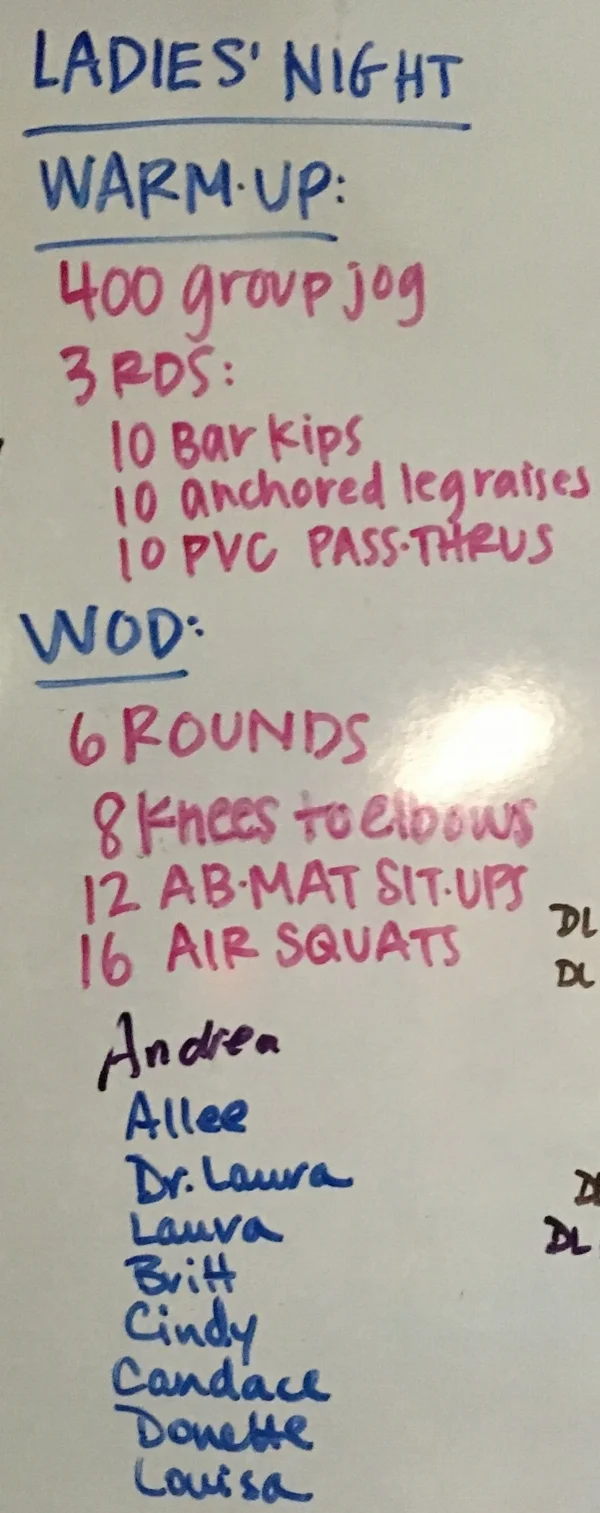 LADIES' NIGHT
WARM-UP:
400 group jog
3 RDS:
10 Bar Kips
10 anchored leg raises
10 PVC PASS-THRUS
WOD:
6 ROUNDS
8 Knees to elbows
12 AB-MAT SIT-UPS
16 AIR SQUATS
DL
DL
Andrea
Allee
Dr. Laura
DL
Laura
DL
Britt
Cindy
Candace
Donette
Louisa